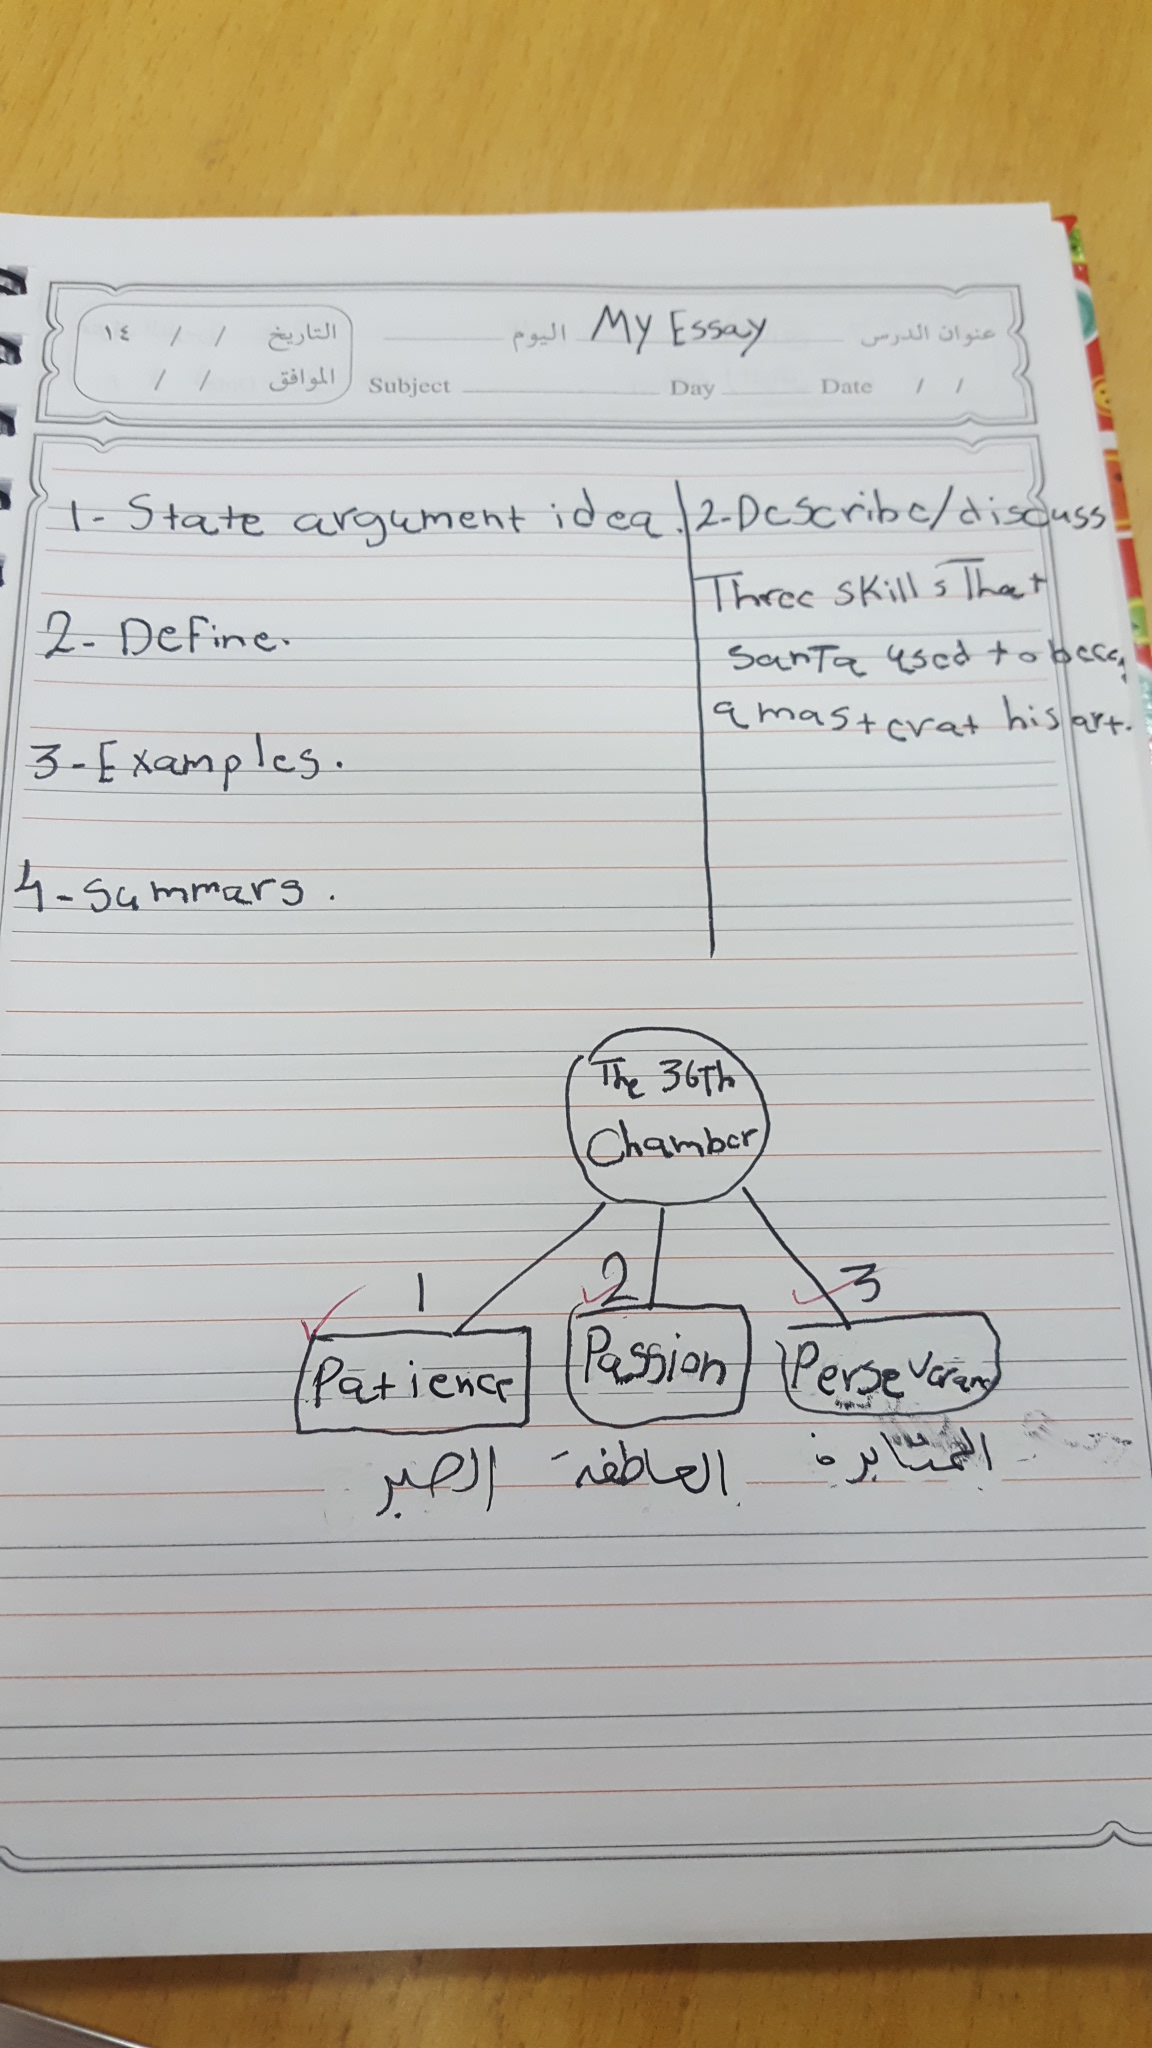 عنوان الدرس My Essay اليوم التاريخ / / ١٤
الموافق / /
Subject Day Date / /
1- State argument idea.
2- Define.
3- Examples.
4- Summars.
2- Describe/discuss
Three skills That
Santa used to
a master at his art.
The 36Th
Chamber
1
Patience
الصبر
2
Passion
العاطفة
3
Perseveranc
المثابرة